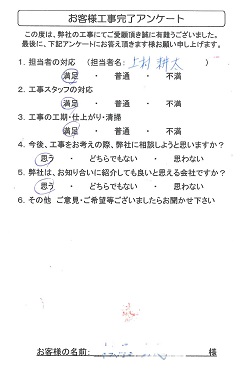 お客様工事完了アンケート
この度は、弊社の工事にてご受願頂き誠に有難うございました。
最後に、下記アンケートにお答え頂きます様お願い申し上げます。
1. 担当者の対応 (担当者名: 上村 耕太 )
満足 ・ 普通 ・ 不満
2. 工事スタッフの対応
満足 ・ 普通 ・ 不満
3. 工事の工期・仕上がり・清掃
満足 ・ 普通 ・ 不満
4. 今後、工事をお考えの際、弊社に相談しようと思いますか?
思う ・ どちらでもない ・ 思わない
5. 弊社は、お知り合いに紹介しても良いと思える会社ですか?
思う ・ どちらでもない ・ 思わない
6. その他 ご意見・ご希望等ございましたらお聞かせ下さい
お客様の名前: 様